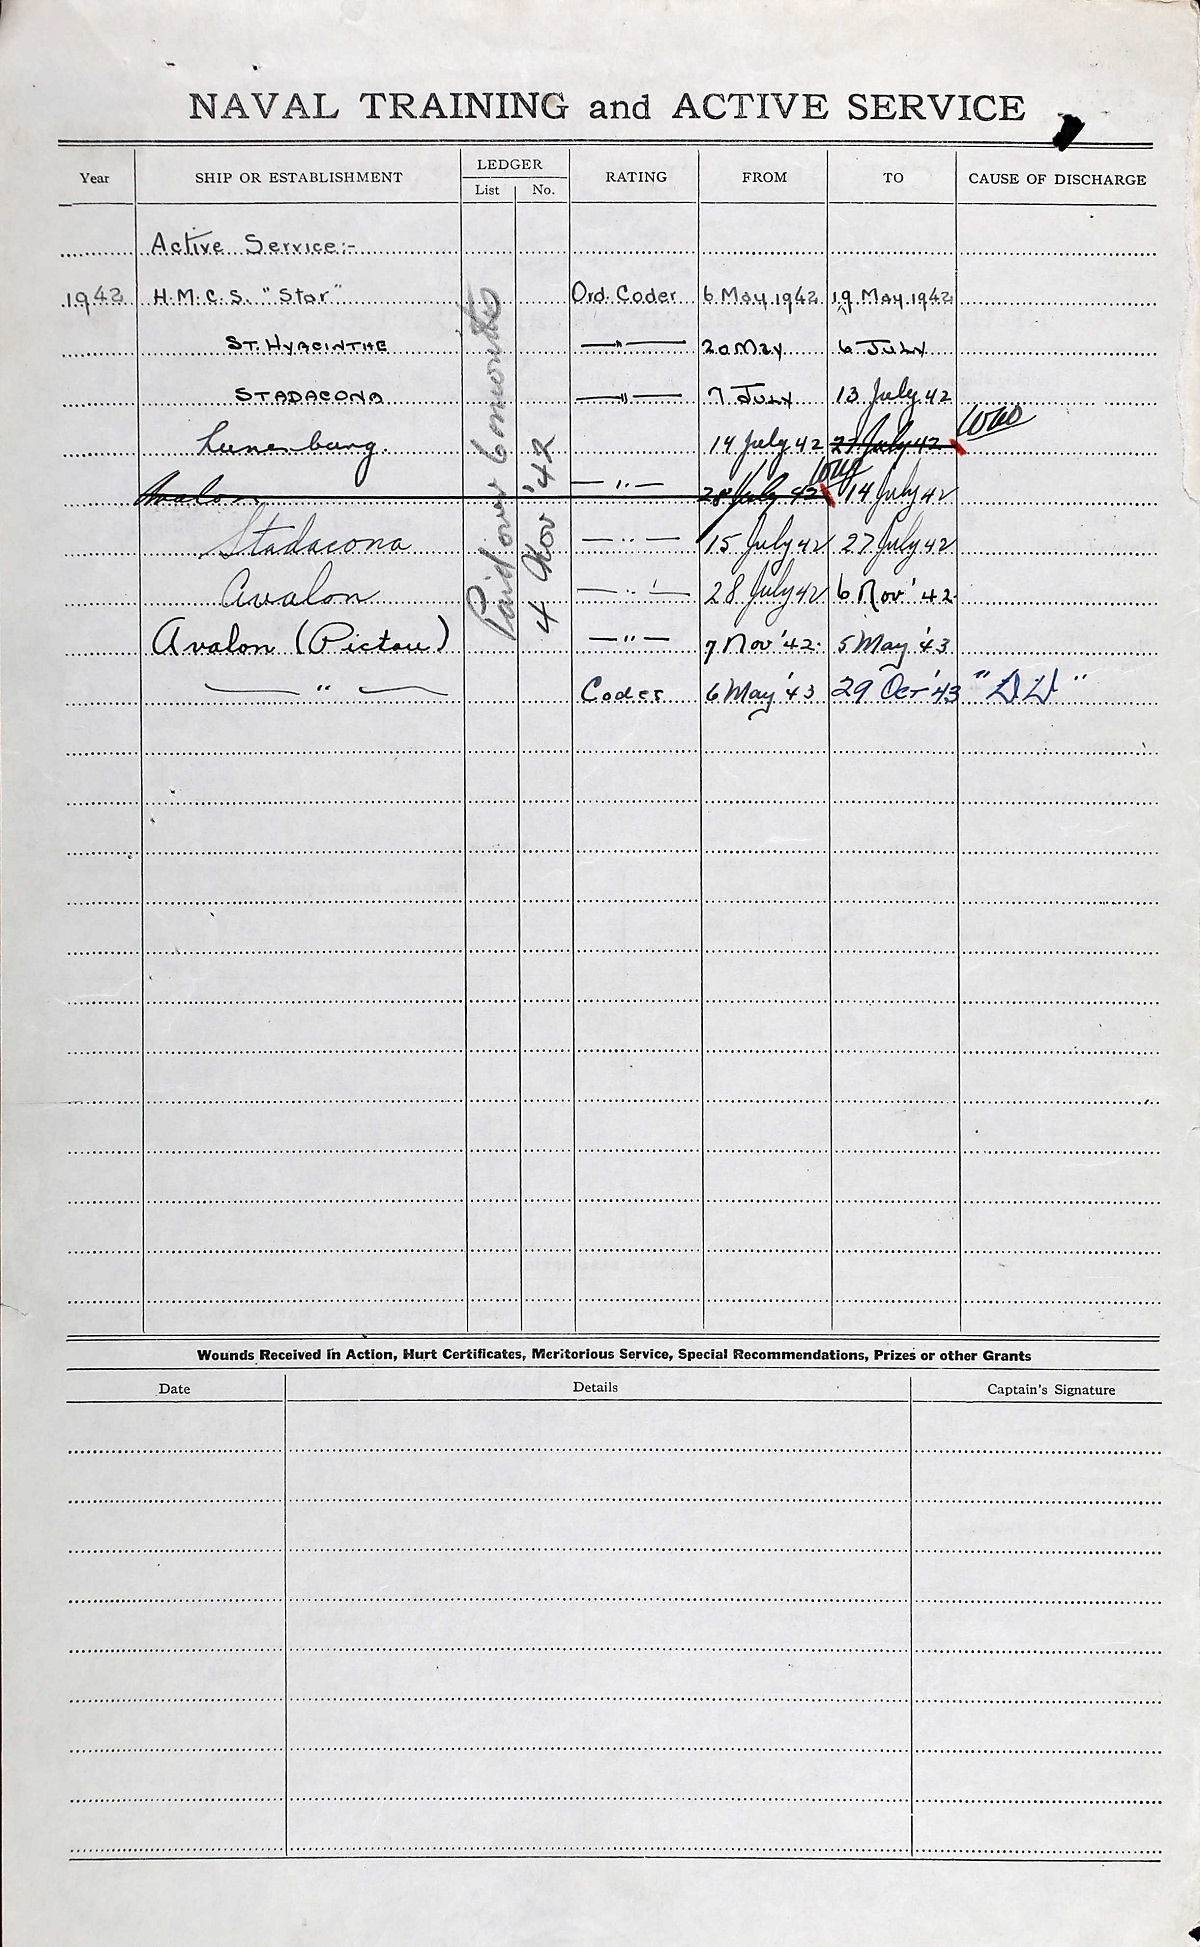 NAVAL TRAINING and ACTIVE SERVICE
Year SHIP OR ESTABLISHMENT LEDGER List No. RATING FROM TO CAUSE OF DISCHARGE
Active Service:-
1942 H.M.C.S. "Star" Ord. Coder 6 May 1942 19 May 1942
ST. HYACINTHE —"— 20 MAY 6 JULY
STADACONA —"— 7 JULY 13 July 42
Lunenburg. 14 July 42 27 July 42
Avalon —"— 28 July 42 14 July 42
Stadacona —"— 15 July 42 27 July 42
Avalon —"— 28 July 42 6 Nov' 42.
Avalon (Pictou) —"— 7 Nov '42. 5 May '43
— " — Coder 6 May '43 29 Oct '43 "DD"
Paid over 6 months
4 Nov '42
Wounds Received in Action, Hurt Certificates, Meritorious Service, Special Recommendations, Prizes or other Grants
Date Details Captain's Signature